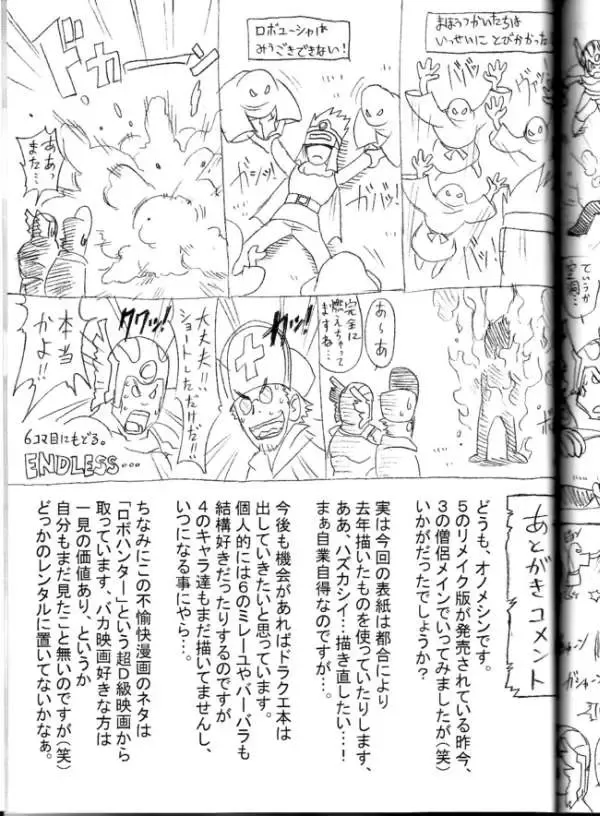 まほうつかいたちは
いっせいに とびかかった!
ガバッ!
ロボユーシャは
みうごきできない!
ガシッ!
ガシッ!
ドカーン
ああっ
また…
あ〜あ
完全に
燃えちゃって
ますね…
大丈夫!!
ショートしただけだ!!
クワッ!
クワッ!
本当
かよ!!
6コマ目にもどる。
ENDLESS…
ていうか
あとがきコメント
どうも、オノメシンです。
5のリメイク版が発売されている昨今、
3の僧侶メインでいってみましたが(笑)
いかがだったでしょうか?
実は今回の表紙は都合により
去年描いたものを使っていたりします、
ああ、ハズカシイ…描き直したい…!
まぁ自業自得なのですが…。
今後も機会があればドラクエ本は
出していきたいと思っています。
個人的には6のミレーユやバーバラも
結構好きだったりするのですが
4のキャラ達もまだ描いてませんし、
いつになる事にやら…。
ちなみにこの不愉快漫画のネタは
「ロボハンター」という超D級映画から
取っています、バカ映画好きな方は
一見の価値あり、というか
自分もまだ見たこと無いのですが(笑)
どっかのレンタルに置いてないかなぁ。